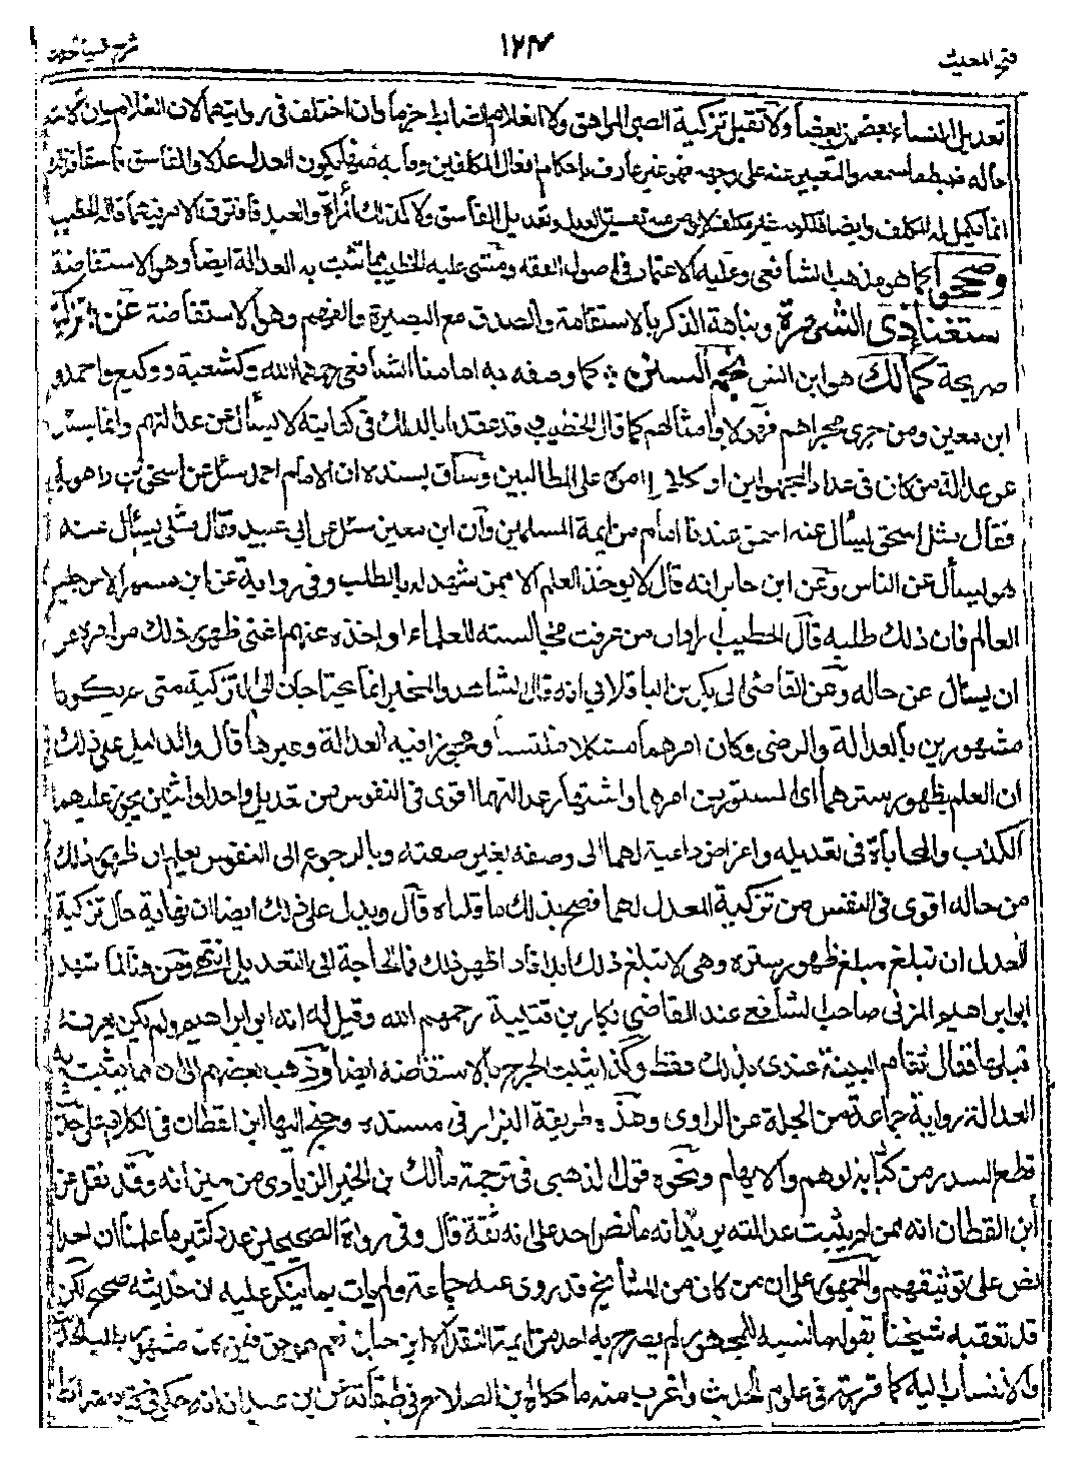 فتح المغيث
١٢٣
شرح الفية الحديث
تعديل النساء بعضهن بعضا ولا تقبل تزكية الصبي المراهق ولا الغلام الضابط جزما وان اختلف في روايتهما لان الغلام وان كانت
حاله ضبط ما سمعه والتعبير عنه على وجهه فهو غير عارف باحكام افعال المكلفين وما به منها يكون العدل عدلا والفاسق فاسقا
انما يكمل له المكلف وايضا فلكونه غير مكلف لا يؤمن منه تفسيق العدل وتعديل الفاسق ولا كذلك المرأة والعبد فافترق الامر فيهما قاله الخطيب
وصححوا كما هو مذهب الشافعي وعليه الاعتماد في اصول الفقه ومشى عليه الخطيب مما تثبت به العدالة ايضا وهو الاستفاضة
ستغناء ذي الشهرة ونباهة الذكر بالاستقامة والصدق مع البصيرة والفهم وهو الاستفاضة عن تزكية
صريحة كمالك هو ابن انس نجم السنن كما وصفه به امامنا الشافعي رحمهما الله وكشعبة ووكيع واحمد و
ابن معين ومن جرى مجراهم فهؤلاء وامثالهم كما قال الخطيب وقد عقد بابا لذلك في كفايته لا يسأل عن عدالتهم وانما يسئل
عن عدالة من كان في عداد المجهولين او اشكل امره على الطالبين وساق بسنده ان الامام احمد سئل عن اسحق بن راهويه
فقال مثل اسحق يسأل عنه اسحق عندنا امام من ايمة المسلمين وان ابن معين سئل عن ابي عبيد وقال مثلي يسأل عنه
هو يسأل عن الناس وعن ابن جابر انه قال لا يؤخذ العلم الا ممن شهد له بالطلب وفي رواية عن ابن مسهر الا من جليس
العالم فان ذلك طلبه قال الخطيب اراد ان من عرفت مجالسته للعلماء واخذه عنهم اغنى ظهور ذلك من امره عن
ان يسئل عن حاله وعن القاضي ابي بكر بن الباقلاني انه قال الشاهد والمخبر انما يحتاجان الى التزكية متى لم يكونا
مشهورين بالعدالة والرضى وكان امرهما مشكلا ملتبسا ومجوزا فيه العدالة وغيرها قال والدليل على ذلك
ان العلم بظهور سترهما اي المستور من امرهما واشتهار عدالتهما اقوى في النفوس من تعديل واحد او اثنين يجوز عليهما
الكذب والمحاباة في تعديله واغراض داعية لهما الى وصفه بغير صفته وبالرجوع الى النفوس يعلم ان ظهور ذلك
من حاله اقوى في النفس من تزكية المعدل لهما فصح بذلك ما قلناه قال ويدل على ذلك ايضا ان نهاية حال تزكية
المعدل ان تبلغ مبلغ ظهور ستره وهي لا تبلغ ذلك ابدا فاذا ظهر ذلك فما الحاجة الى التعديل انتهى ومن هنا لما شهد
ابو ابراهيم المزني صاحب الشافعي عند القاضي بكار بن قتيبة رحمهم الله وقيل له انه ابو ابراهيم ولم يكن يعرفه
قبلها فقال تقام البينة عندي بذلك فقط وكذا يثبت الجرح بالاستفاضة ايضا وذهب بعضهم الى ان مما يثبت به
العدالة رواية جماعة من الجلة عن الراوي وهذه طريقة البزار في مسنده وجنح اليها ابن القطان في الكلام على حديث
قطع السدر من كتابه الوهم والايهام ونحوه قول الذهبي في ترجمة مالك بن الخير الزيادي من ميزانه وقد نقل عن
ابن القطان انه ممن لم يثبت عدالته يريد انه ما نص احد على انه ثقة قال وفي رواة الصحيحين عدد كثير ما علمنا ان احدا
نص على توثيقهم والجمهور على ان من كان من المشايخ قد روى عنه جماعة ولم يات بما ينكر عليه ان حديثه صحيح لكن
قد تعقبه شيخنا بقوله ما نسبه للجمهور لم يصرح به احد من ايمة النقد الا ابن حبان نعم هو حق فيمن كان مشهورا بطلب الحديث
والانتساب اليه كما قررته في علوم الحديث واغرب منه ما حكاه ابن الصلاح في طبقاته عن ابن عبدان انه حكى في كتابه شرائط